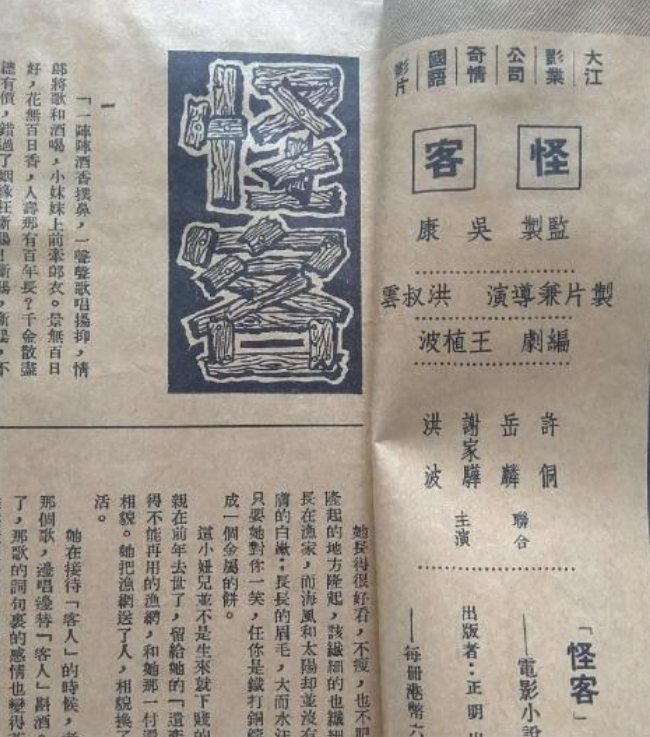 大江
影業
公司
奇情
國語
影片
怪客
監製 吳康
製片兼導演 洪叔雲
編劇 王植波
許侗
岳麟
謝家驊
洪波
聯合
主演
「怪客」
——電影小說
出版者：正明出
——每冊港幣六
怪客
一
「一陣陣酒香撲鼻，一聲聲歌唱揚抑，情
郎將歌和酒喝，小妹妹上前牽郎衣。景無百日
好，花無百日香，人壽那有百年長？千金散盡
她長得很好看，不瘦，也不肥
隆起的地方隆起，該纖細的也纖細
長在漁家，而海風和太陽却並沒有
膚的白嫩；長長的眉毛，大而水汪
只要她對你一笑，任你是鐵打銅
成一個金屬的餅。
這小妞兒並不是生來就下賤的
親在前年去世了，留給她的「遺產
得不能再用的漁網，和她那一付
相貌。她把漁網送了人，相貌換了
活。
她在接待「客人」的時候，
那個歌，邊唱邊替「客人」斟酒。
了，那歌的詞句裏的感情也變得